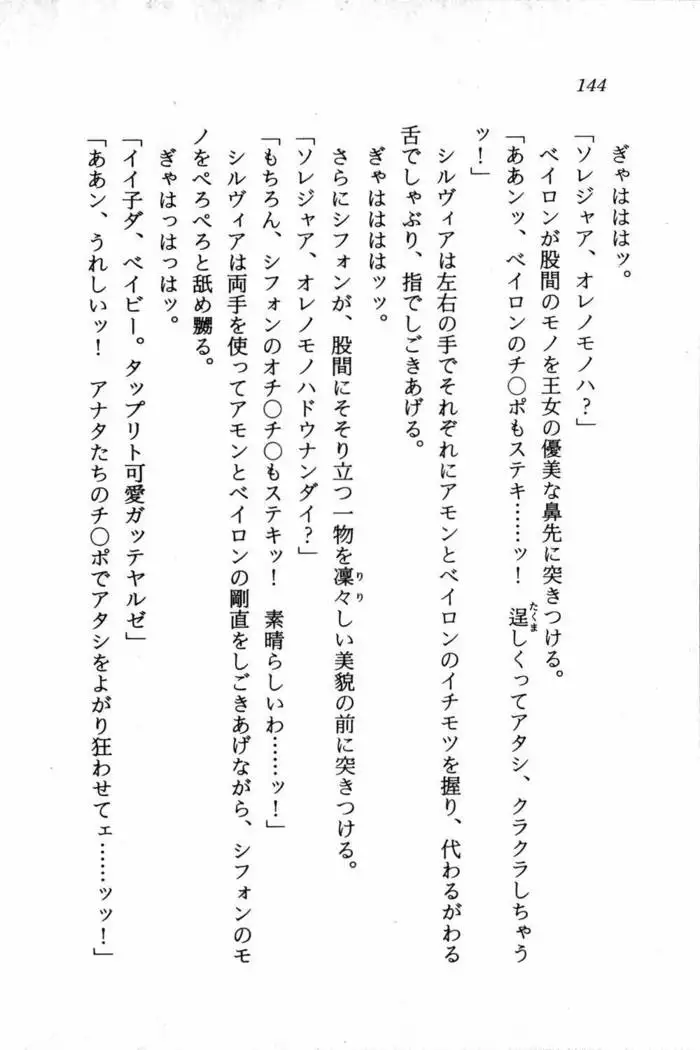 144
ぎゃはははッ。
「ソレジャア、オレノモノハ？」
ベイロンが股間のモノを王女の優美な鼻先に突きつける。
「ああンッ、ベイロンのチ〇ポもステキ……ッ！　逞しくってアタシ、クラクラしちゃう
ッ！」
シルヴィアは左右の手でそれぞれにアモンとベイロンのイチモツを握り、代わるがわる
舌でしゃぶり、指でしごきあげる。
ぎゃははははッッ。
さらにシフォンが、股間にそそり立つ一物を凜々しい美貌の前に突きつける。
「ソレジャア、オレノモノハドウナンダイ？」
「もちろん、シフォンのオチ〇チ〇もステキッ！　素晴らしいわ……ッ！」
シルヴィアは両手を使ってアモンとベイロンの剛直をしごきあげながら、シフォンのモ
ノをぺろぺろと舐め嬲る。
ぎゃはっはっはッ。
「イイ子ダ、ベイビー。タップリト可愛ガッテヤルゼ」
「ああン、うれしいッ！　アナタたちのチ〇ポでアタシをよがり狂わせてェ……ッッ！」